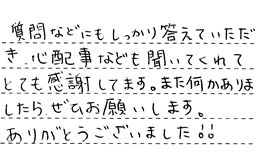 質問などにもしっかり答えていただ
き、心配事なども聞いてくれて
とても感謝してます。また何かありま
したら、ぜひお願いします。
ありがとうございました!!